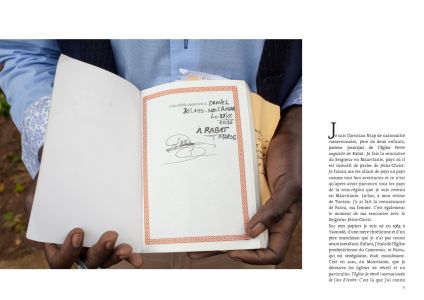 cette Bible appartient à DANIEL
Le
2016
A RABAT
MAROC
Je suis Christian Ntap de nationalité
camerounaise, père de deux enfants,
pasteur principal de l'Eglise Pierre
angulaire de Rabat. Je fais la rencontre
du Seigneur en Mauritanie, pays où il
est interdit de parler de Jésus-Christ.
Je faisais ma vie allant de pays en pays
comme tout bon aventurier et ce n'est
qu'après avoir parcouru tous les pays
de la sous-région que je suis revenu
en Mauritanie. Là-bas, à mon retour
de Tunisie, j'y ai fait la connaissance
de Fatou, ma femme. C'est également
le moment de ma rencontre avec le
Seigneur Jésus-Christ.
Sur mes papiers je suis né en 1984 à
Yaoundé, d'une mère chrétienne et d'un
père musulman que je n'ai pas connu
avant mes 18 ans. Enfant, j'étais de l'Eglise
presbytérienne du Cameroun; et Fatou,
qui est sénégalaise, était musulmane.
C'est en 2010, en Mauritanie, que je
découvre les églises de réveil et en
particulier l'Eglise de réveil internationale
de Côte d'Ivoire. C'est là que j'ai connu